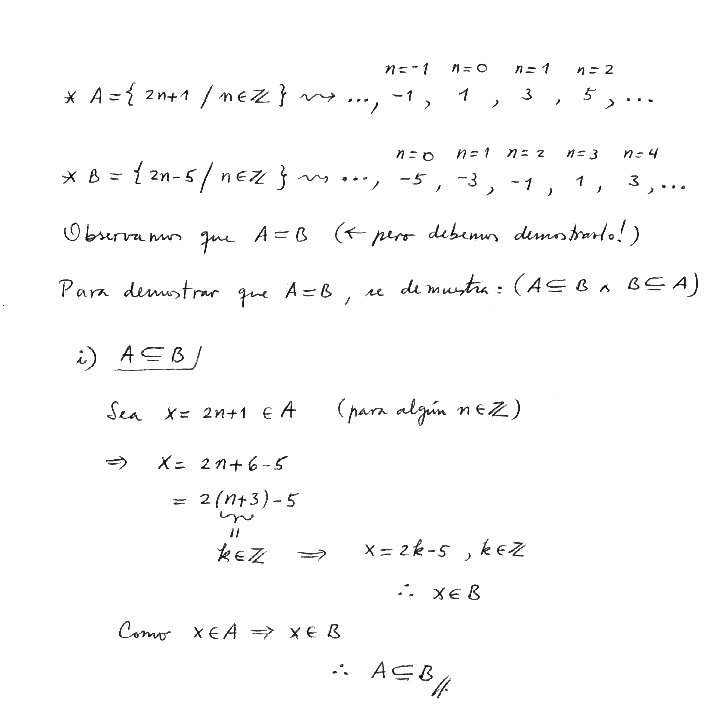 n=-1 n=0 n=1 n=2
* A={ 2n+1 / n∈ℤ } ⇝ ..., -1, 1, 3, 5, ...
n=0 n=1 n=2 n=3 n=4
* B = { 2n-5 / n∈ℤ } ⇝ ..., -5, -3, -1, 1, 3, ...
Observamos que A=B (← pero debemos demostrarlo!)
Para demostrar que A=B, se demuestra: (A⊆B ∧ B⊆A)
i) A⊆B
Sea x= 2n+1 ∈ A (para algún n∈ℤ)
⇒ x= 2n+6-5
= 2(n+3)-5
=
k∈ℤ ⇒ x=2k-5, k∈ℤ
∴ x∈B
Como x∈A ⇒ x∈B
∴ A⊆B //